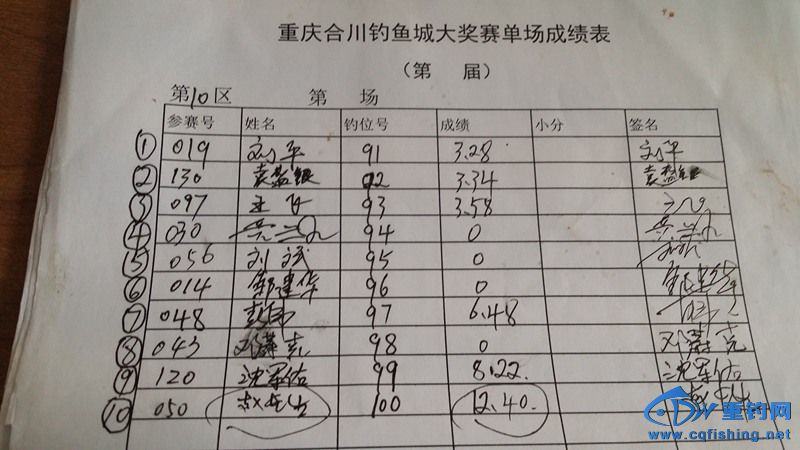 重庆合川钓鱼城大奖赛单场成绩表
（第 届）
第10区 第 场
参赛号 姓名 钓位号 成绩 小分 签名
① 019 刘平 91 3.28 刘平
② 130 92 3.34
③ 097 93 3.58
④ 030 94 0
⑤ 056 刘斌 95 0
⑥ 014 郭建华 96 0
⑦ 048 彭伟 97 6.48
⑧ 043 刘克 98 0 刘克
⑨ 120 沈军佑 99 8.22 沈军佑
⑩ 050 100 12.40.
重钓网
www.cqfishing.net